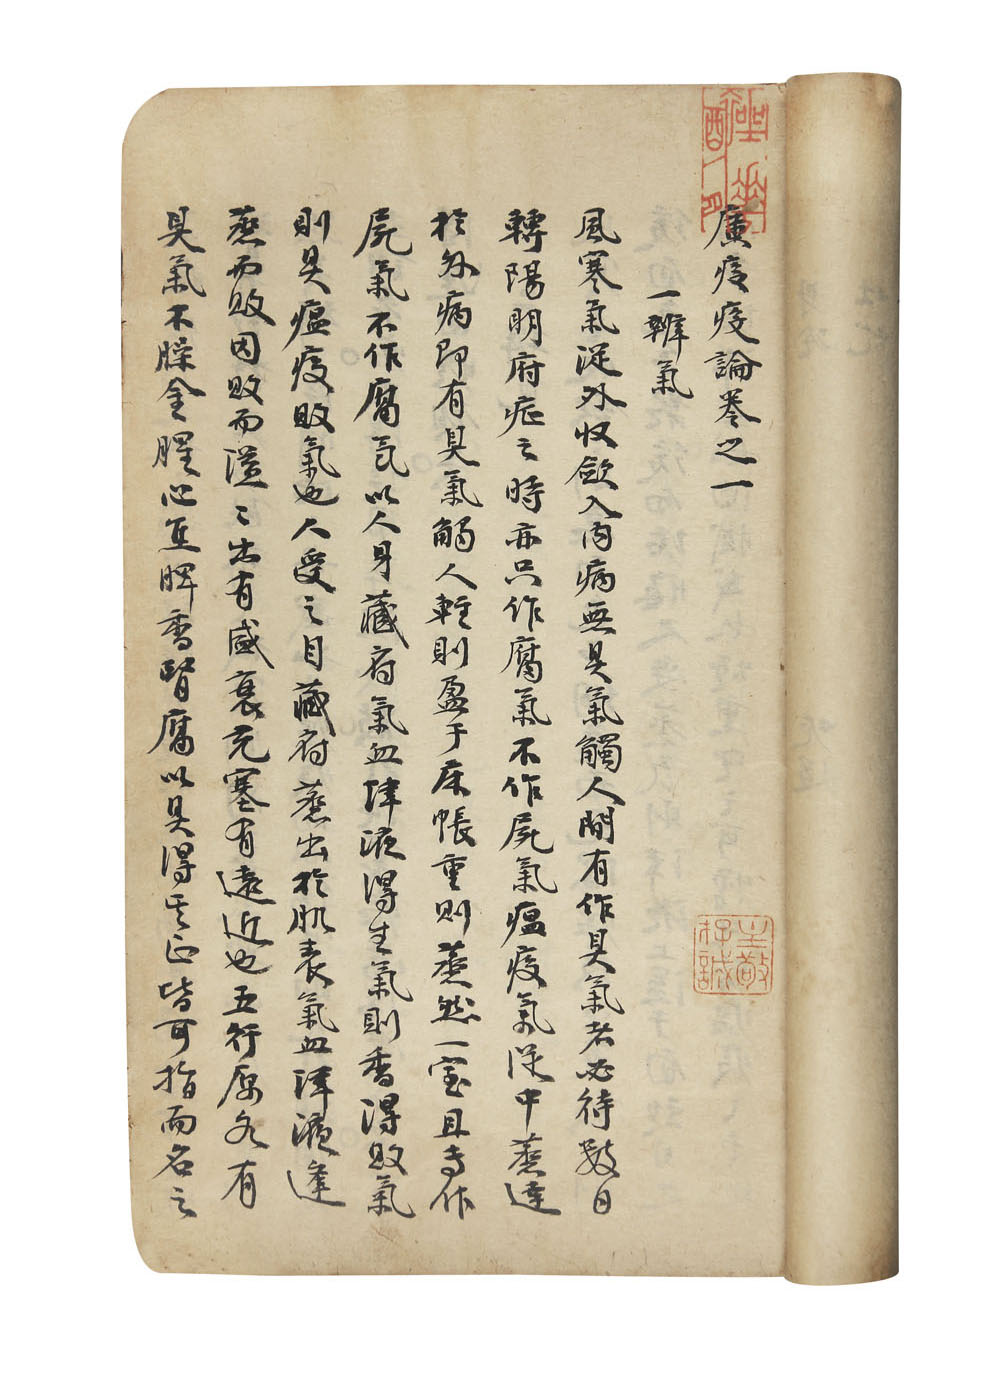 廣瘟疫論卷之一
一辨氣
風寒氣從外收歛入內病無臭氣觸人間有作臭氣者必待數日
轉陽明府症之時亦只作腐氣不作屍氣瘟疫氣從中蒸達
於外病即有臭氣觸人輕則盈于床帳重則蒸然一室且專作
屍氣不作腐氣以人身藏府氣血津液得生氣則香得敗氣
則臭瘟疫敗氣也人受之自藏府蒸出於肌表氣血津液逢
蒸而敗因敗而溢〻出有盛衰充塞有遠近也五行原各有
臭氣木臊金腥心焦脾香腎腐以臭得其正皆可指而名之
主敬
存誠